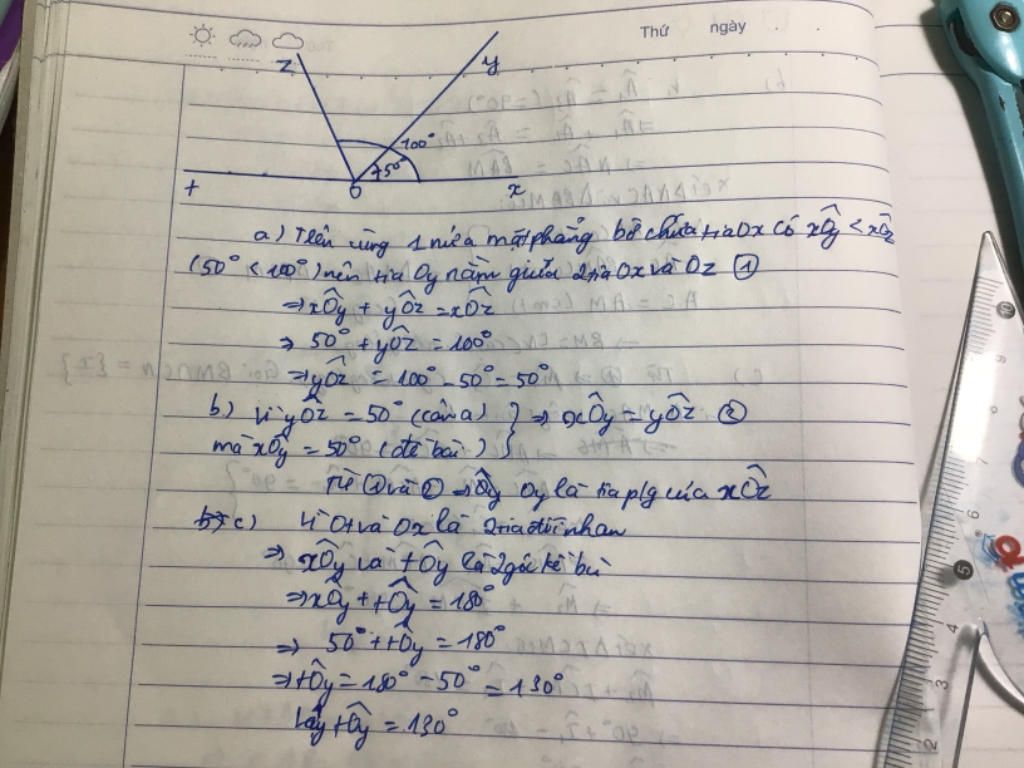 Thứ ngày
z
y
100°
75°
t
O
x
a) Trên cùng 1 nửa mặt phẳng bờ chứa tia Ox có xÔy < xÔz
(50° < 100°) nên tia Oy nằm giữa 2 tia Ox và Oz ①
⇒ xÔy + yÔz = xÔz
⇒ 50° + yÔz = 100°
⇒ yÔz = 100° - 50° = 50°
b) Vì yÔz = 50° (câu a) } ⇒ xÔy = yÔz ②
mà xÔy = 50° (đề bài) }
Từ ① và ② ⇒ Oy là tia p/g của xÔz
c) Vì Ot và Ox là 2 tia đối nhau
⇒ xÔy và tÔy là 2 góc kề bù
⇒ xÔy + tÔy = 180°
⇒ 50° + tÔy = 180°
⇒ tÔy = 180° - 50° = 130°
Vậy tÔy = 130°
10
9
7
6
5
4
3
2